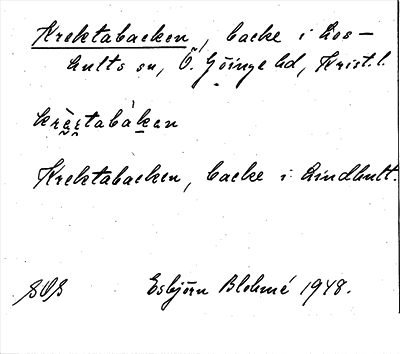 Krektabacken, backe i Los-
hults sn, Ö. Göinge hd, Krist. l.
krɛ̀ɛtabàkan
Krektabacken, backe i Lindhult.
SOS Esbjörn Blohmé 1948.